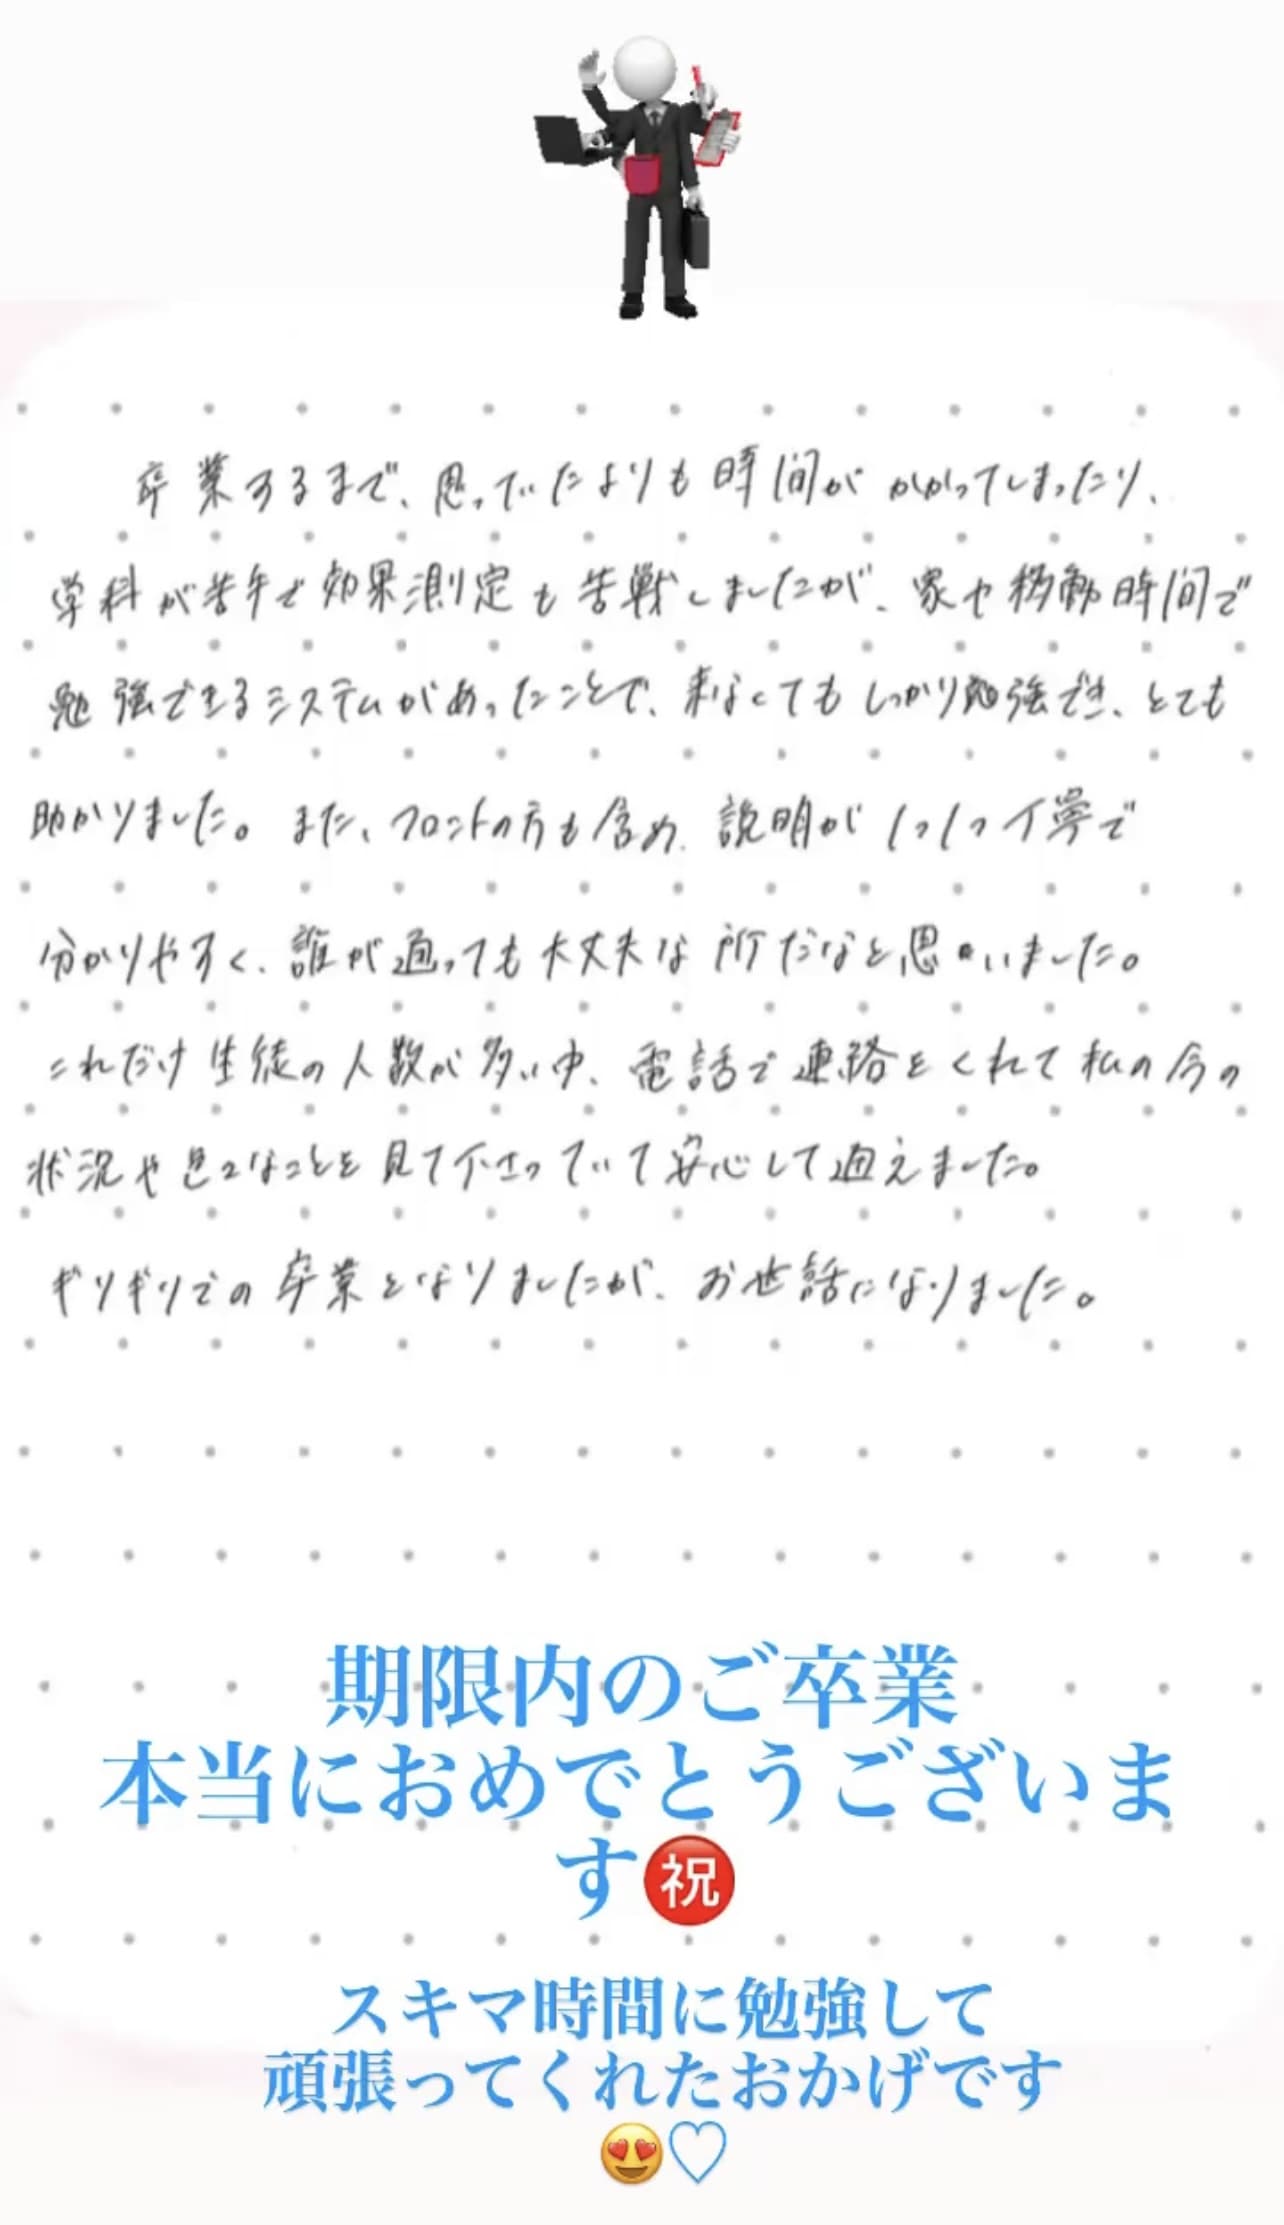 卒業するまで、思っていたよりも時間がかかってしまったり、
学科が苦手で効果測定も苦戦しましたが、家や移動時間で
勉強できるシステムがあったことで、来なくてもしっかり勉強でき、とても
助かりました。また、フロントの方も含め、説明が1つ1つ丁寧で
分かりやすく、誰が通っても大丈夫な所だなと思いました。
これだけ生徒の人数が多い中、電話で連絡をくれて私の今の
状況や色々なことを見て下さっていて安心して通えました。
ギリギリでの卒業となりましたが、お世話になりました。
期限内のご卒業
本当におめでとうございま
す㊗️
スキマ時間に勉強して
頑張ってくれたおかげです
😍♡